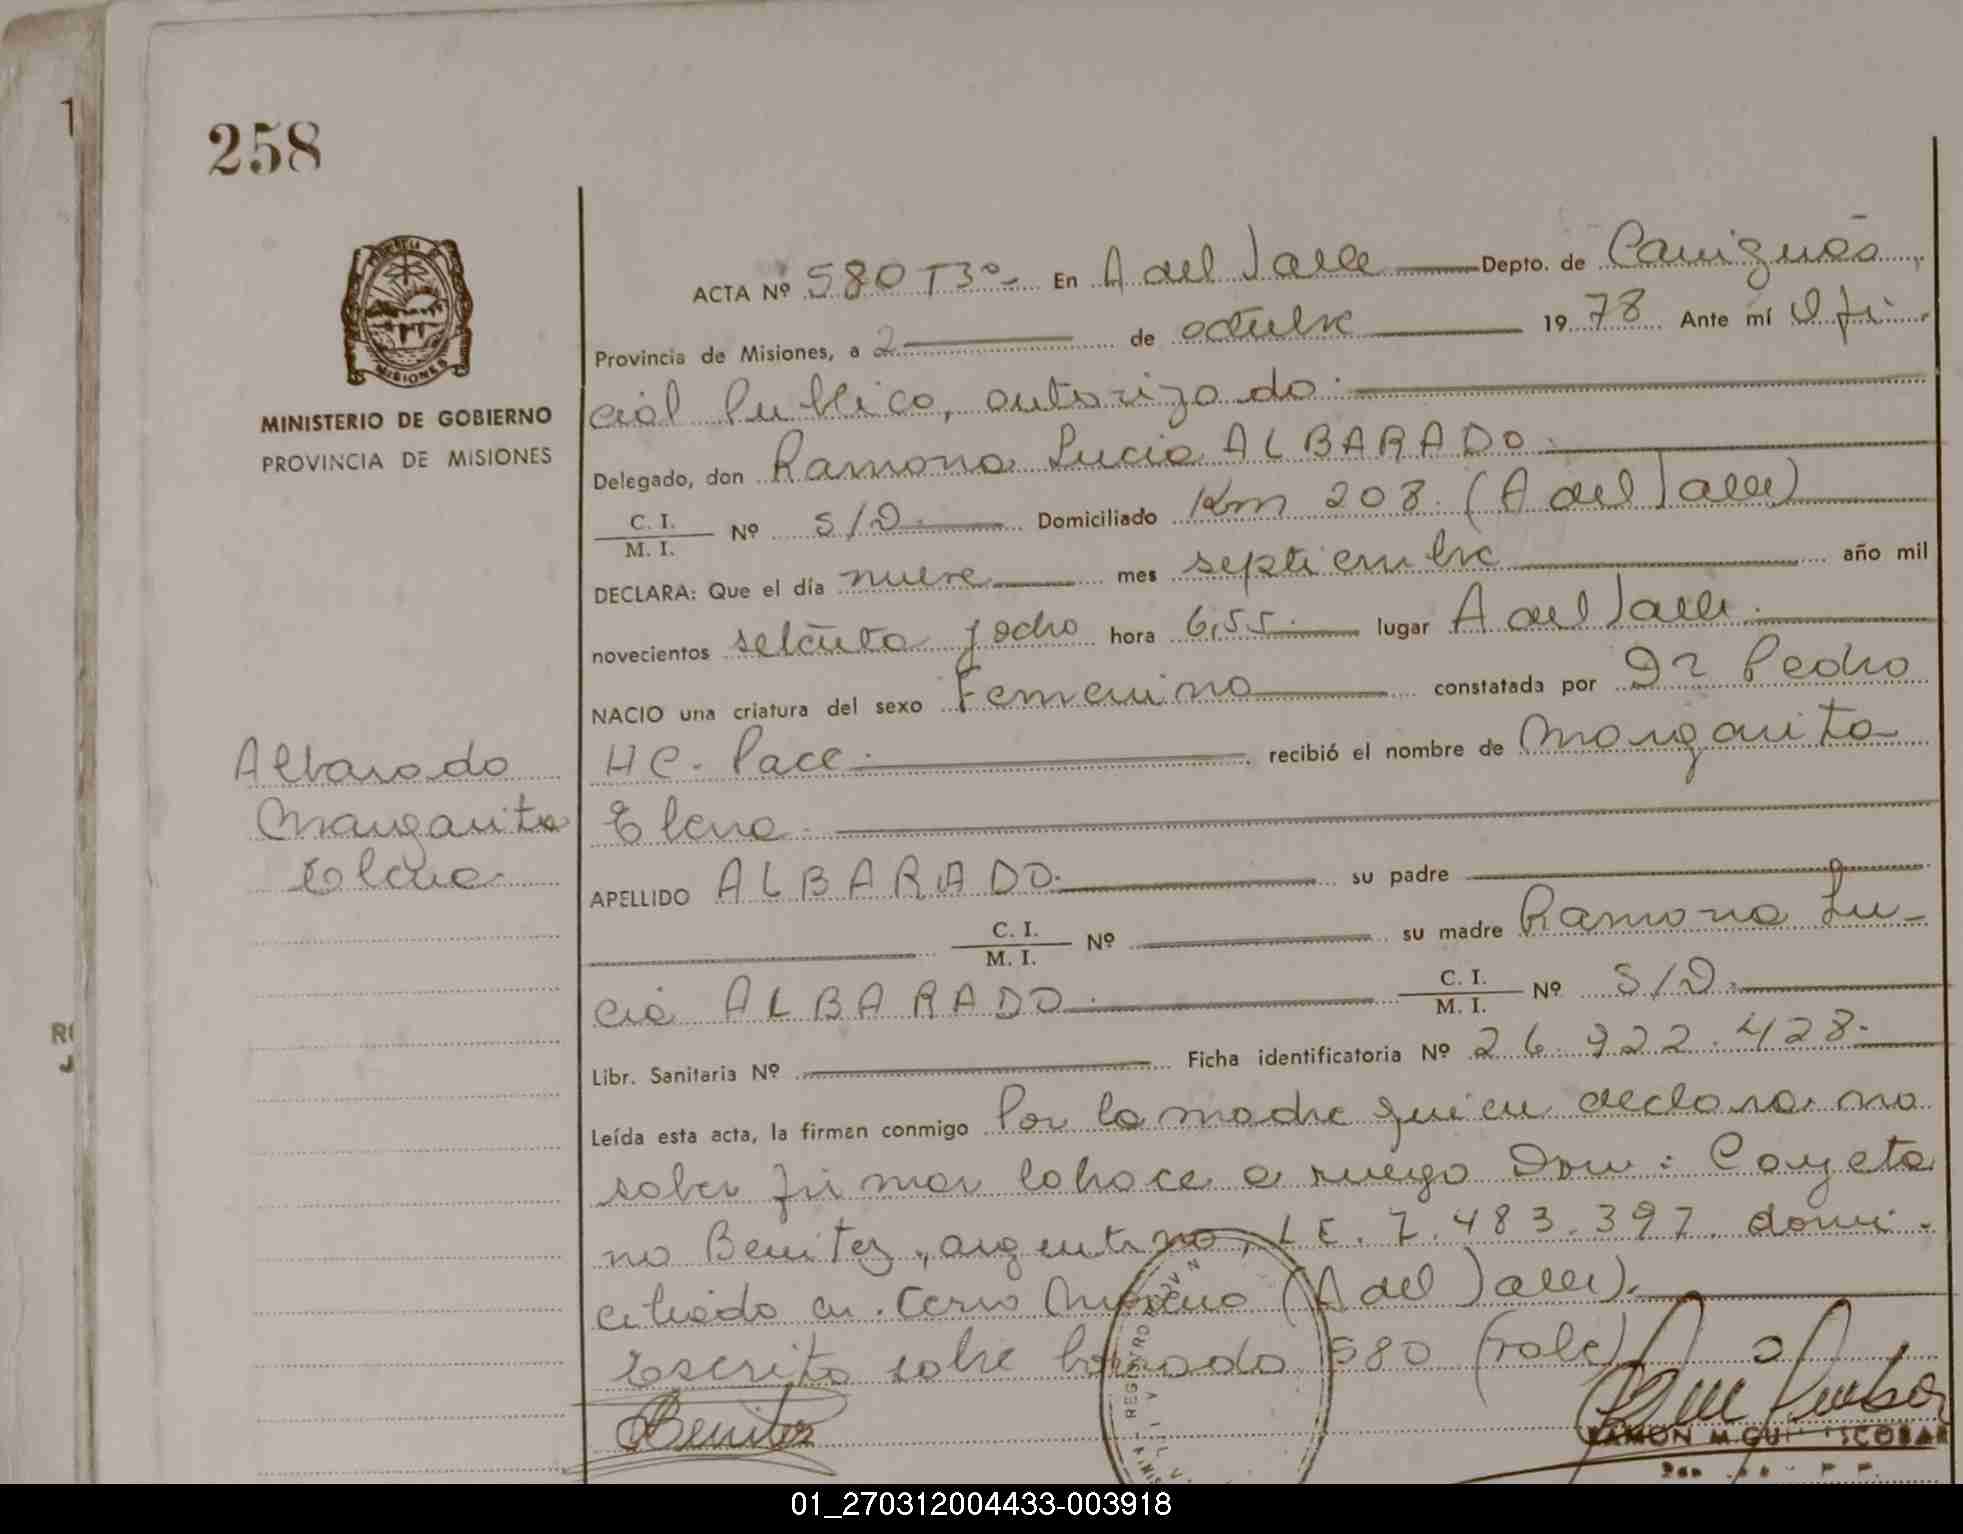 258
MINISTERIO DE GOBIERNO
PROVINCIA DE MISIONES
MISIONES
ACTA Nº 580 T3º En A del Valle Depto. de Cainguás
Provincia de Misiones, a 2 de octubre 1978 Ante mí Ofi-
cial Publico, autorizado.
Delegado, don Ramona Lucia ALBARADO.
C. I. / M. I. Nº S/D. Domiciliado Km 208. (A del Valle)
DECLARA: Que el día nueve mes septiembre año mil
novecientos setenta y ocho hora 6,55. lugar A del Valle.
NACIO una criatura del sexo Femenino constatada por Dr Pedro
H C. Pace. recibió el nombre de Margarita
Elena.
APELLIDO ALBARADO. su padre
C. I. / M. I. Nº su madre Ramona Lu-
cia ALBARADO. C. I. / M. I. Nº S/D.
Libr. Sanitaria Nº Ficha identificatoria Nº 26.922.428.
Leída esta acta, la firman conmigo Por la madre quien declara no
saber firmar lo hace a ruego Don: Cayeta
no Benitez, argentino, L E. 7.483.397. domi-
ciliado en Cerro Moreno (A del Valle).
Escrito sobre borrado 580 (vale)
Albarado
Margarita
Elena.
Benitez
REGISTRO PROV
RAMON M GU ESCOBAR
01_270312004433-003918